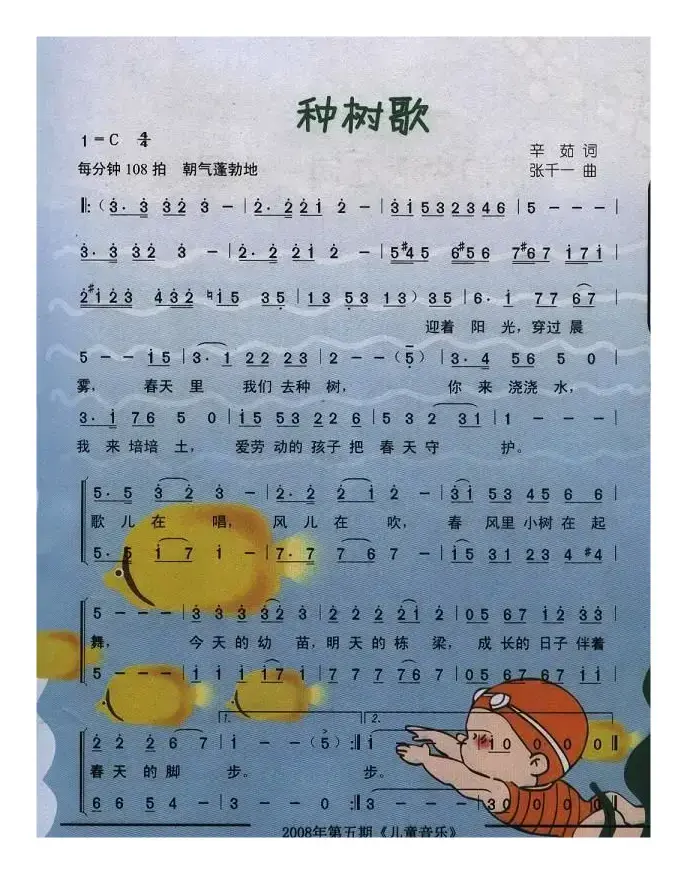 种树歌
1=C 4/4
辛茹 词
每分钟 108 拍 朝气蓬勃地
张千一 曲
‖:( 3· 3 3 2 3 - | 2· 2 2 1 2 - | 3 1 5 3 2 3 4 6 | 5 - - - |
3· 3 3 2 3 - | 2· 2 2 1 2 - | 5 #4 5 6 #5 6 7 #6 7 1 7 1 |
2 #1 2 3 4 3 2 ♮1 5 3 5 | 1 3 5 3 1 3 ) 3 5 | 6· 1 7 7 6 7 |
迎着 阳 光, 穿过 晨
5 - - 1 5 | 3· 1 2 2 2 3 | 2 - - ( 5 ) | 3· 4 5 6 5 0 |
雾, 春天 里 我们 去种 树, 你 来 浇浇 水,
3· 1 7 6 5 0 | 1 5 5 3 2 2 6 | 5 3 2 3 1 | 1 - - - |
我 来 培培 土, 爱劳 动的 孩子 把 春 天 守 护。
5· 5 3 2 3 | 2· 2 2 1 2 - | 3 1 5 3 4 5 6 6 |
歌 儿 在 唱, 风 儿 在 吹, 春 风里 小树 在 起
5· 5 1 7 1 - | 7· 7 7 6 7 - | 1 5 3 1 2 3 4 #4 |
5 - - - | 3 3 3 3 2 3 | 2 2 2 2 1 2 | 0 5 6 7 1 2 3 3 |
舞, 今 天 的 幼 苗, 明 天 的 栋 梁, 成 长的 日子 伴着
5 - - - | 1 1 1 1 7 1 | 7 7 7 7 6 7 | 0 5 6 7 6 7 1 1 |
1. 2.
2 2 2 6 7 | 1 - - ( 5 ) :‖ 1 1 0 0 0 0 ‖
春 天 的 脚 步。 步。
6 6 5 4 | 3 - - 0 :‖ 3 - - - 3 0 0 0 0 ‖
2008年第五期《儿童音乐》